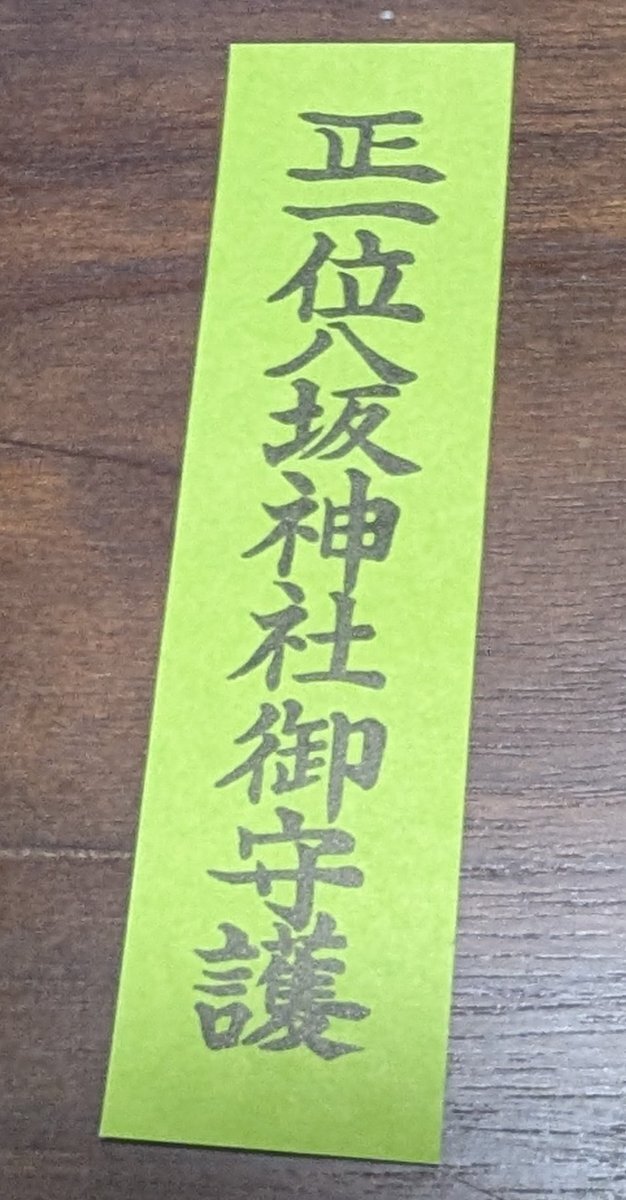 正一位八坂神社御守護